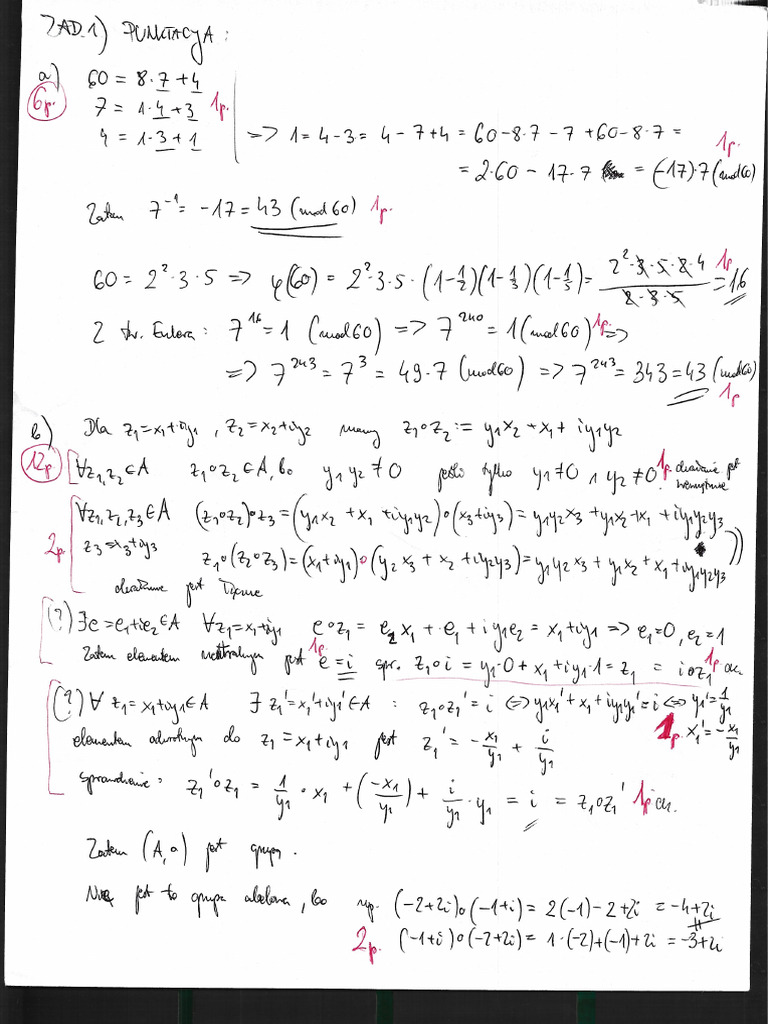 ZAD.1) PUNKTACJA:
a) 60 = 8·7+4
6p. 7 = 1·4+3 1p.
4 = 1·3+1 => 1 = 4-3 = 4-7+4 = 60-8·7-7+60-8·7 = 1p.
= 2·60 - 17·7 = (-17)·7 (mod 60)
Zatem 7⁻¹ = -17 = 43 (mod 60) 1p.
60 = 2²·3·5 => φ(60) = 2²·3·5·(1-1/2)(1-1/3)(1-1/5) = (2²·3·5·2·4)/(2·3·5) = 16 1p
Z tw. Eulera: 7¹⁶ = 1 (mod 60) => 7²⁴⁰ = 1 (mod 60) 1p. =>
=> 7²⁴³ = 7³ = 49·7 (mod 60) => 7²⁴³ = 343 = 43 (mod 60) 1p
b) Dla z₁=x₁+iy₁, z₂=x₂+iy₂ mamy z₁∘z₂ := y₁x₂+x₁+iy₁y₂
12p. ∀z₁,z₂∈A z₁∘z₂∈A, bo y₁y₂≠0 jeśli tylko y₁≠0 ∧ y₂≠0 1p. działanie jest wewnętrzne
∀z₁,z₂,z₃∈A (z₁∘z₂)∘z₃ = (y₁x₂+x₁+iy₁y₂)∘(x₃+iy₃) = y₁y₂x₃+y₁x₂+x₁+iy₁y₂y₃
2p. z₃=x₃+iy₃ z₁∘(z₂∘z₃) = (x₁+iy₁)∘(y₂x₃+x₂+iy₂y₃) = y₁y₂x₃+y₁x₂+x₁+iy₁y₂y₃
działanie jest łączne
(?) ∃e=e₁+ie₂∈A ∀z₁=x₁+iy₁ e∘z₁ = e₂x₁+e₁+iy₁e₂ = x₁+iy₁ => e₁=0, e₂=1
Zatem elementem neutralnym jest 1p. e=i spr. z₁∘i = y₁·0+x₁+iy₁·1 = z₁ = i∘z₁ 1p cu.
(?) ∀ z₁=x₁+iy₁∈A ∃ z₁'=x₁'+iy₁'∈A : z₁∘z₁'=i <=> y₁x₁'+x₁+iy₁y₁'=i <=> y₁'=1/y₁
elementem odwrotnym do z₁=x₁+iy₁ jest z₁' = -x₁/y₁ + i/y₁ 1p. x₁'=-x₁/y₁
sprawdzenie: z₁'∘z₁ = 1/y₁·x₁+(-x₁/y₁)+i/y₁·y₁ = i = z₁∘z₁' 1p cu.
Zatem (A,∘) jest grupą.
Nie jest to grupa abelowa, bo np. (-2+2i)∘(-1+i) = 2(-1)-2+2i = -4+2i
2p. (-1+i)∘(-2+2i) = 1·(-2)+(-1)+2i = -3+2i